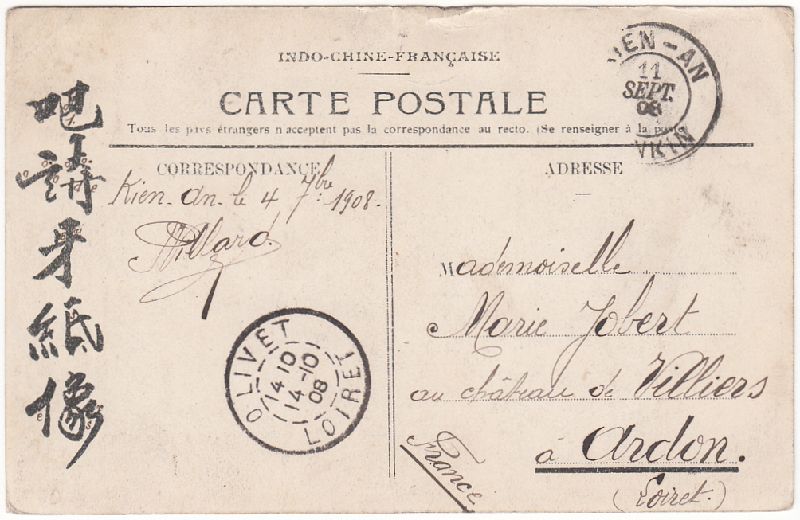 INDO-CHINE-FRANÇAISE
CARTE POSTALE
Tous les pays étrangers n'acceptent pas la correspondance au recto. (Se renseigner à la poste
CORRESPONDANCE
ADRESSE
Kien. An. le 4 7bre 1908.
Villard
Mademoiselle
Marie Jobert
au château de Villiers
à Ardon.
(Loiret.)
France
IEN-AN
11
SEPT.
08
NKIN
OLIVET
14 10
14-10
08
LOIRET
吧
詩
牙
紙
像